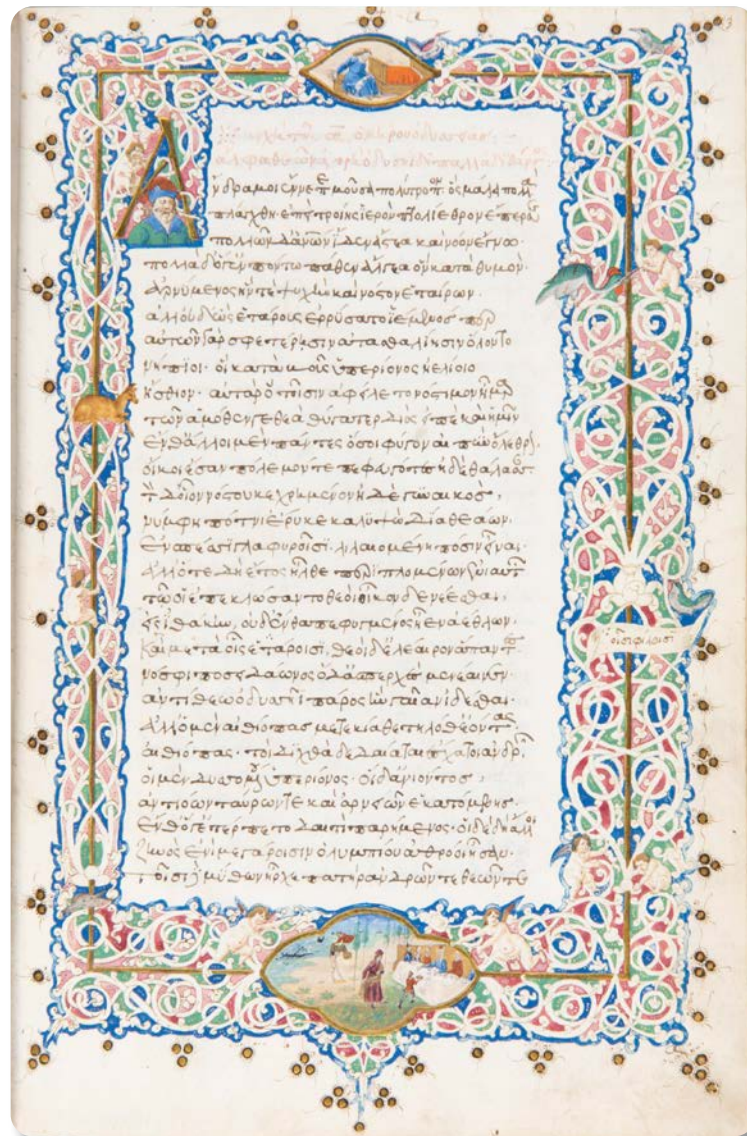 Ἄνδρα μοι ἔννεπε μοῦσα πολύτροπον ὃς μάλα πολλὰ
πλάγχθη ἐπεὶ τροίης ἱερὸν πτολίεθρον ἔπερσε
πολλῶν δ' ἀνων ἴδεν ἄστεα καὶ νόον ἔγνω·
πολλὰ δ' ὅγ' ἐν πόντω πάθεν ἄλγεα ὃν κατὰ θυμὸν·
ἀρνύμενος ἥν τε ψυχὴν καὶ νόστον ἑταίρων·
ἀλλ' οὐδ' ὣς ἑτάρους ἐρρύσατο ἱέμενός περ
αὐτῶν γὰρ σφετέρησιν ἀτασθαλίησιν ὄλοντο
νήπιοι· οἳ κατὰ βοῦς ὑπερίονος ἠελίοιο
ἤσθιον· αὐτὰρ ὁ τοῖσιν ἀφείλετο νόστιμον ἦμαρ
τῶν ἀμόθεν γε θεὰ θύγατερ διὸς εἰπὲ καὶ ἡμῖν
ἔνθ' ἄλλοι μὲν πάντες ὅσοι φύγον αἰπὺν ὄλεθρον
οἴκοι ἔσαν πόλεμόν τε πεφευγότες ἠδὲ θάλασσαν
τὸν δ' οἶον νόστου κεχρημένον ἠδὲ γυναικὸς
νύμφη πότνι' ἔρυκε καλυψὼ δῖα θεάων·
ἐν σπέσσι γλαφυροῖσι· λιλαιομένη πόσιν εἶναι
ἀλλ' ὅτε δὴ ἔτος ἦλθε περιπλομένων ἐνιαυτῶν
τῶ οἱ ἐπεκλώσαντο θεοὶ οἶκον δὲ νέεσθαι
εἰς ἰθάκην, οὐδ' ἔνθα πεφυγμένος ἦεν ἀέθλων·
καὶ μετὰ οἷσι ἑτάροισι, θεοὶ δ' ἐλέαιρον ἅπαντες
νόσφι ποσειδάωνος ὁ δ' ἀσπερχὲς μενέαινεν
ἀντιθέω ὀδυσῆϊ πάρος ἣν γαῖαν ἱδέσθαι
ἀλλ' ὁ μὲν αἰθίοπας μετεκίαθε τηλόθ' ἐόντας
αἰθίοπας· τοὶ διχθὰ δεδαίαται ἔσχατοι ἀνδρῶν
οἱ μὲν δυσομένου ὑπερίονος· οἱ δ' ἀνιόντος
ἀντιόων ταύρων τε καὶ ἀρνειῶν ἑκατόμβης·
ἔνθ' ὅγ' ἐτέρπετο δαιτὶ παρήμενος· οἱ δὲ δὴ ἄλλοι
ζηνὸς ἐνὶ μεγάροισιν ὀλυμπίου ἀθρόοι ἦσαν·
τοῖσι μύθων ἦρχε πατὴρ ἀνδρῶν τε θεῶν τε
οἷσι φίλοισι